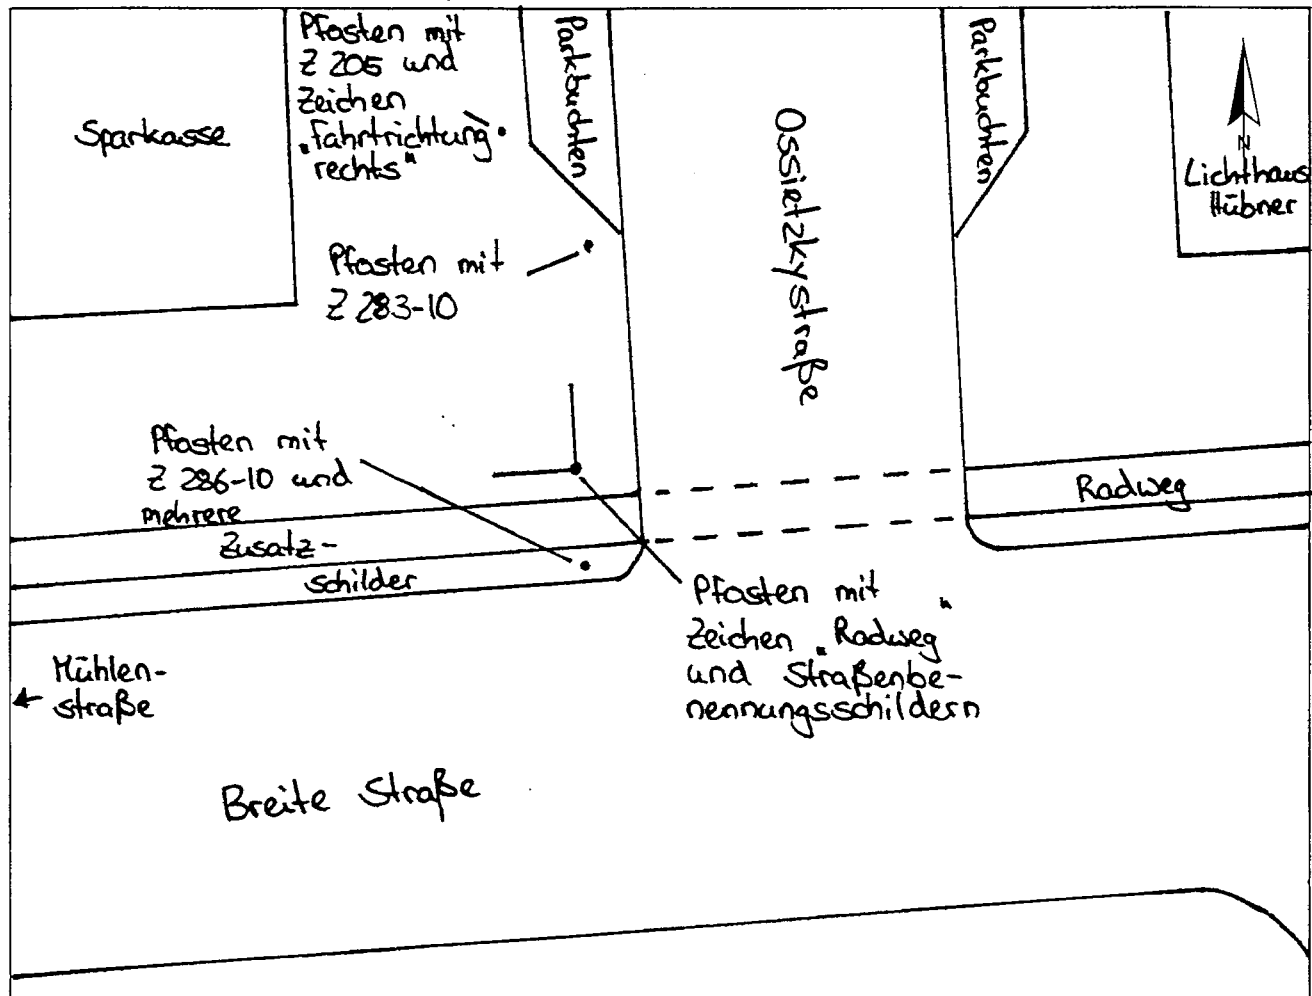 Pfosten mit
Z 205 und
Zeichen
„Fahrtrichtung
rechts"
Parkbuchten
Ossietzkystraße
Parkbuchten
N
Lichthaus
Hübner
Sparkasse
Pfosten mit
Z 283-10
Pfosten mit
Z 286-10 und
mehrere
Zusatz-
schilder
Radweg
Pfosten mit
Zeichen „Radweg"
und Straßenbe-
nennungsschildern
Mühlen-
straße
Breite Straße